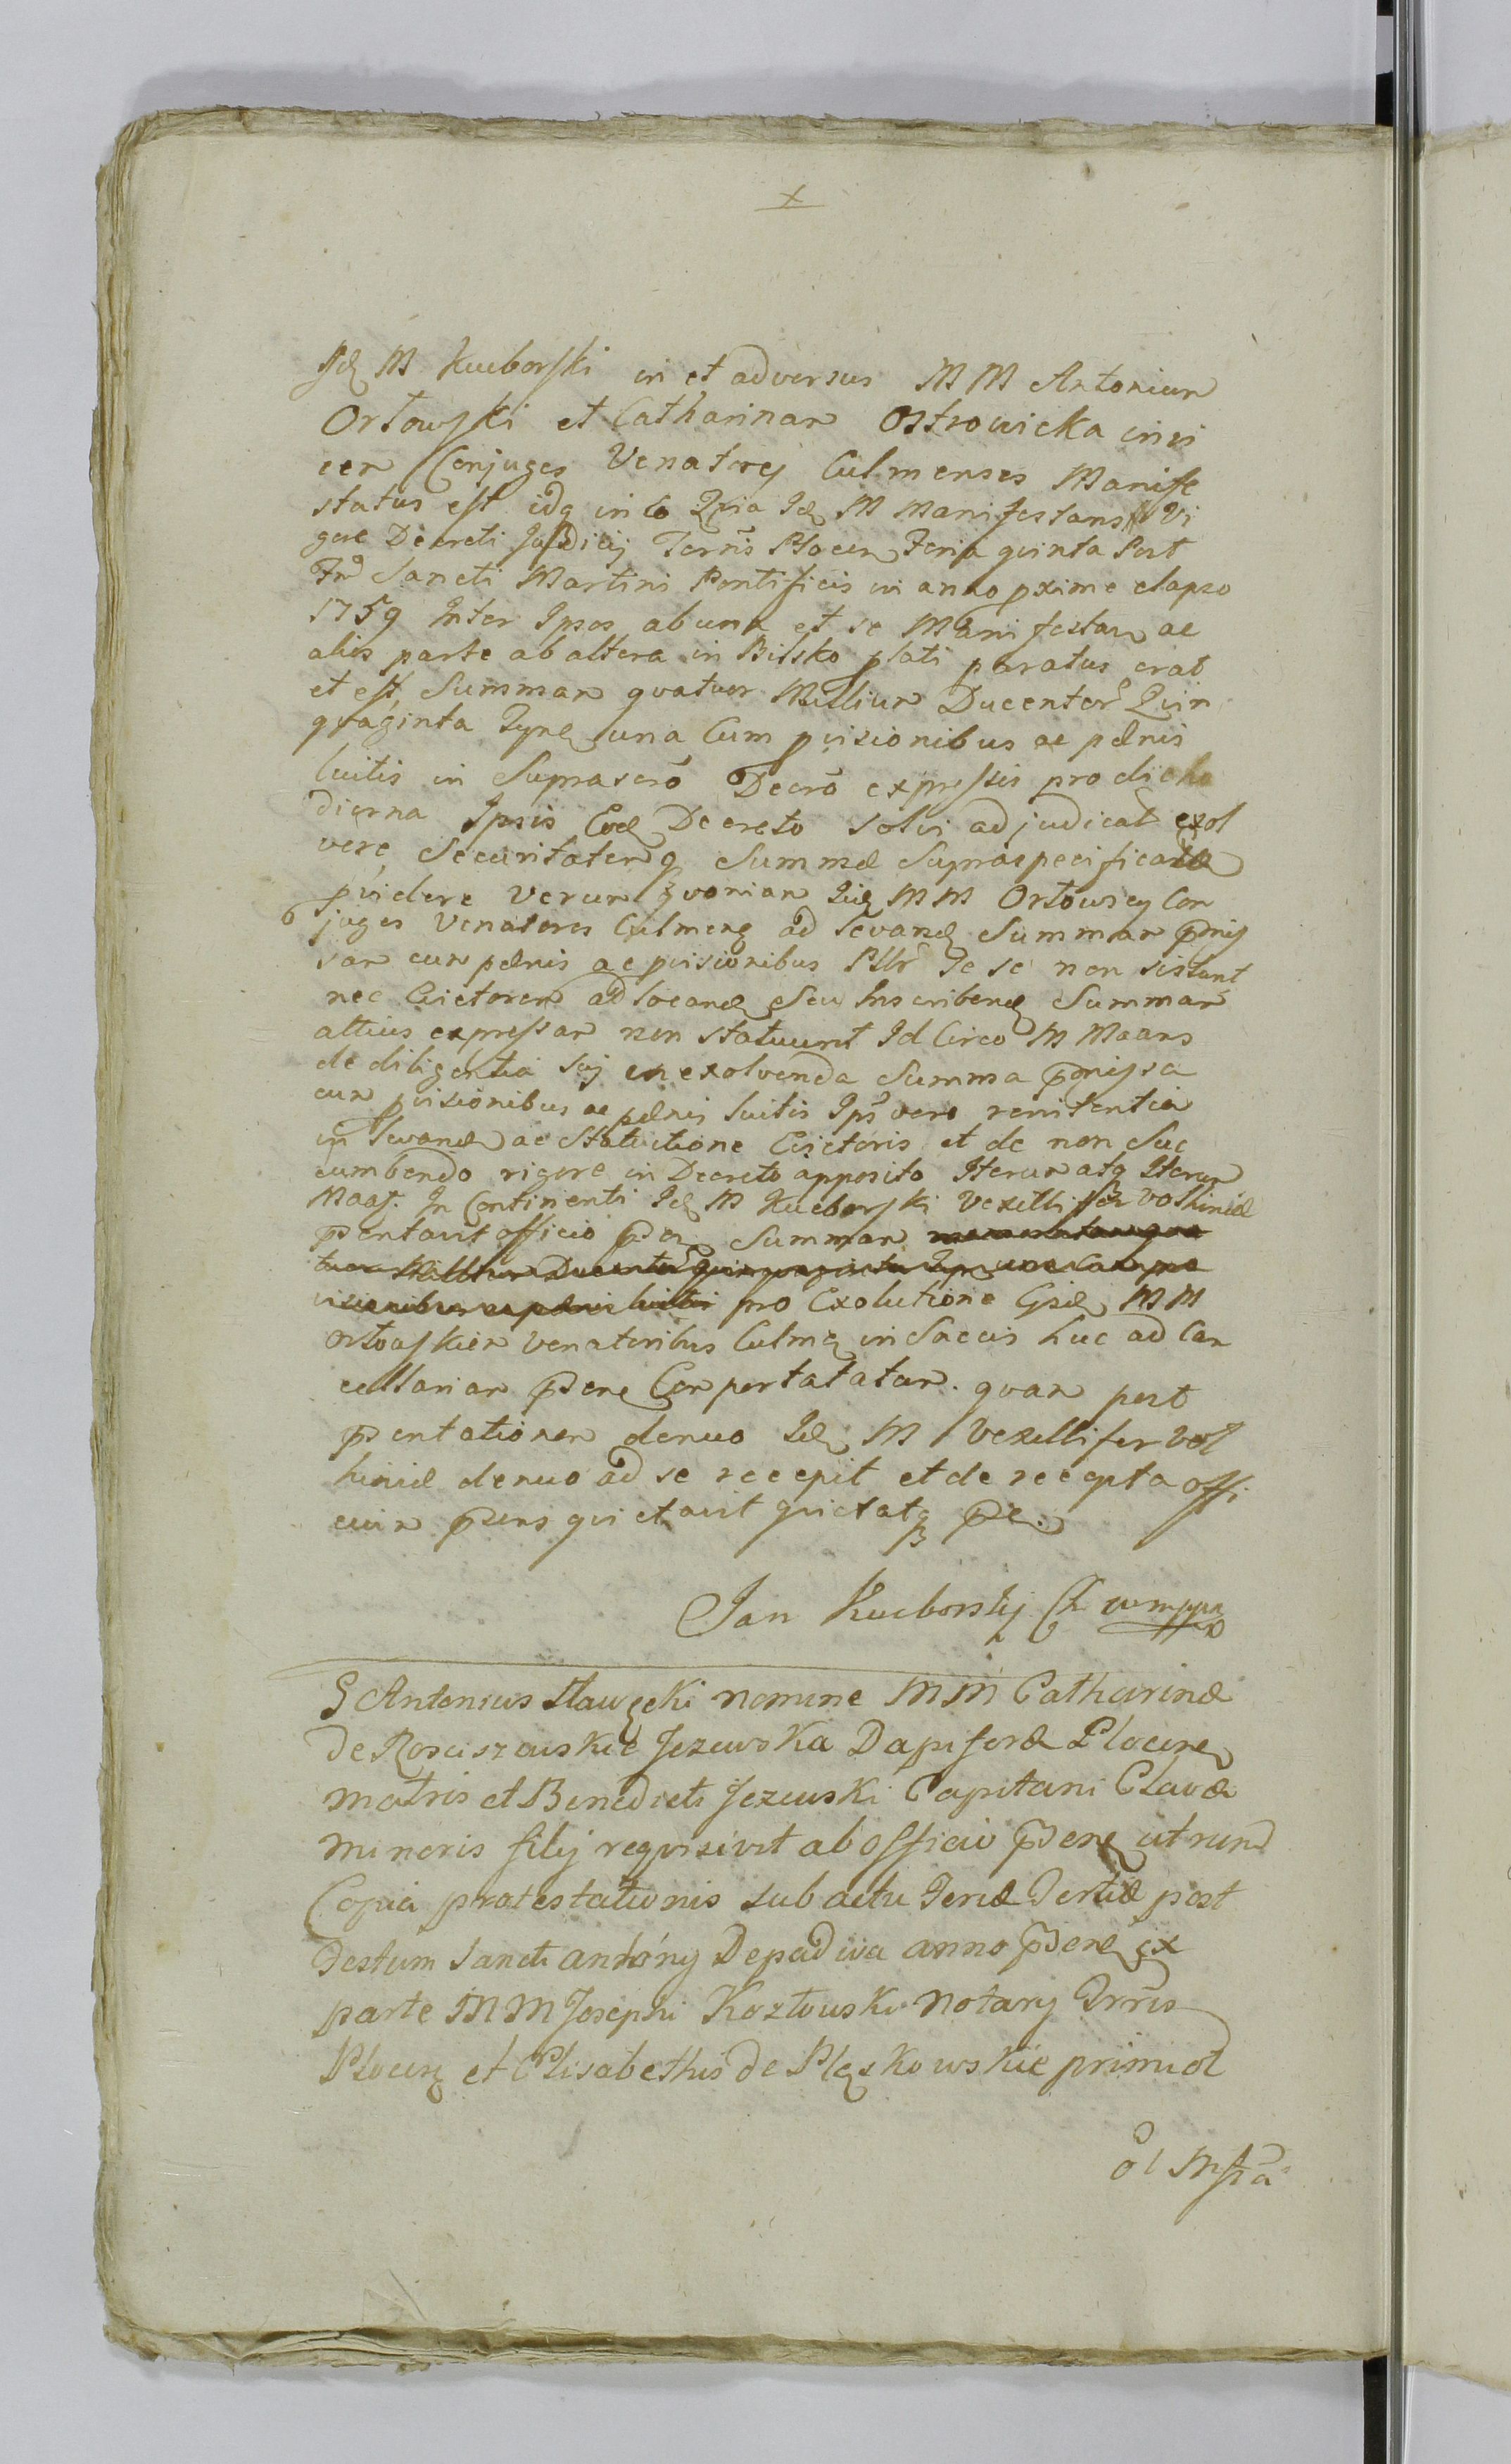 x
Id M Kuczborski in et adversus MM Antonium
Orłowski et Catharinam Ostrowicka invi
cem Conjuges Venatorej Culmenses Manife
status est idq in eo Quia Id M Manifestans Vi
gore Decreti Judicij Terris Plocen Feria quinta Post
Ftu Sancti Martini Pontificis in anno pxime elapso
1759 Inter Ipsos ab una et se Manifestan ac
aliis parte ab altera in Bilsko plati paratus erat
et est, Summam quatuor Millium Ducentor Quin
quaginta una Cum pvisionibus ac pænis
luitis in Suprascro Decro expressis pro die ho
dierna Ipsis Eod Decreto solvi adjudicat exol
vere, Securitatemq Summæ Supraspecificatæ
pvidere Verum Quoniam Iid MM Orłowscy Con
juges Venatores Culmens ad levand Summam pmis
sam cum pænis ac pvisionibus se non sistunt
nec Evictorem ad locand seu Inscribend Summam
altius expressam non statuunt Id Circo M Maans
de diligentia sui in exolvenda Summa pmissa
cum pvisionibus ac pænis luitis Ips vero renitentia
in levand ac Statutione Evictoris et de non Suc
cumbendo rigore in Decreto apposito Iterum atq Iterum
Maaj. In Continenti Id M Kuczborski Vexillifer Volhiniæ
pentavit officio pn Summam
Millium Ducentor Quinquaginta una Cum pvi
visionibus ac pænis luitis pro Exolutione MM
Orłowskim Venatoribus Culmen in Saccis huc ad Can
cellariam pnem Comportatatam. quam post
pentationem denuo Id M Vexillifer Vol
hiniæ denuo ad se recepit et de recepta offi
cium pns quietavit quietatq pn.
Jan Kuczborskij Ch W mppa
G Antonius Sławęcki nomine MM Catharinæ
de Rosciszewskie Jezewska Dapiferæ Plocens
matris et Benedicti Jezewski Capitani Clavæ
minoris filij requisivit ab officio pnen
Copia protestationis sub actu Feriæ Tertiæ post
Festum Sancti Antonij De padua anno pnen ex
parte MM Josephi Kozłowski Notarij Trris
Plocens et Elisabethis de Pląskowskie primi ol
ol